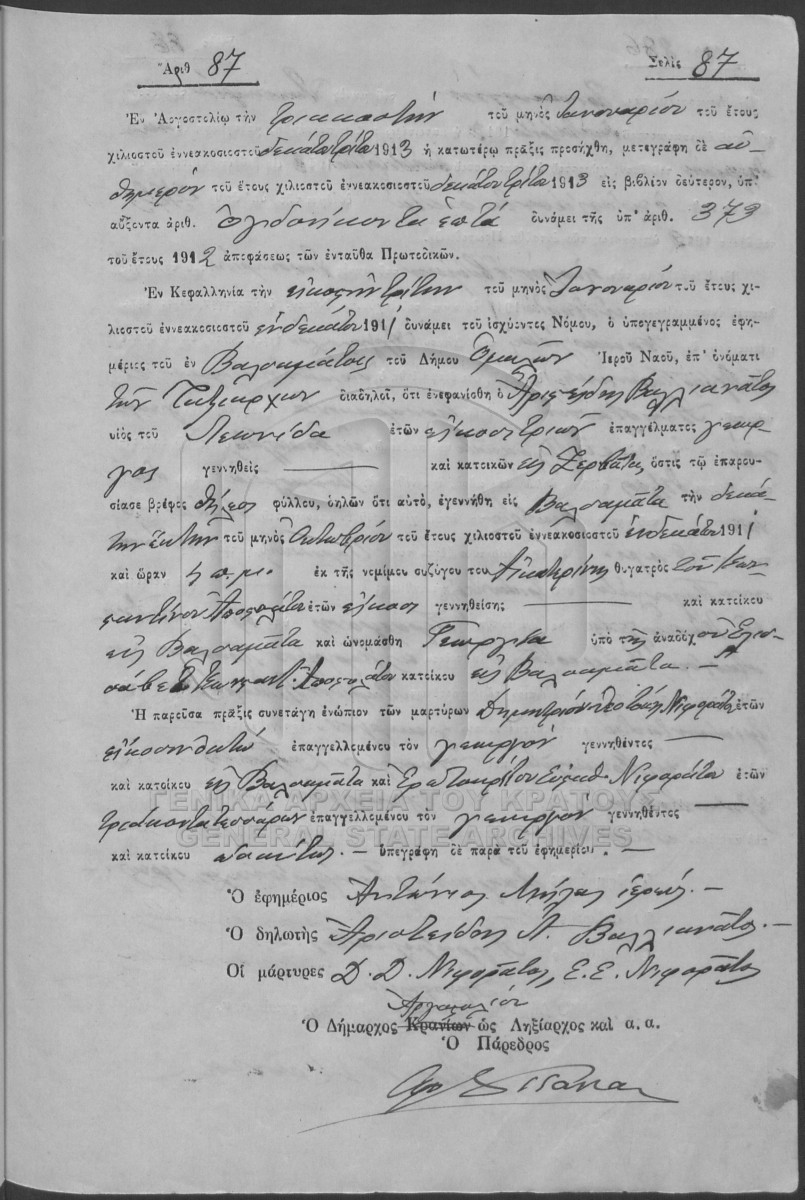 Ἀριθ 87
Σελὶς 87
Ἐν Ἀργοστολίῳ τὴν τριακοστὴν τοῦ μηνὸς Ἰανουαρίου τοῦ ἔτους
χιλιοστοῦ ἐννεακοσιοστοῦ δεκάτου τρίτου 1913 ἡ κατωτέρω πρᾶξις προσήχθη, μετεγράφη δὲ αὐ-
θημερὸν τοῦ ἔτους χιλιοστοῦ ἐννεακοσιοστοῦ δεκάτου τρίτου 1913 εἰς βιβλίον δεύτερον, ὑπ'
αὔξοντα ἀριθ. ὀγδοήκοντα ἑπτά δυνάμει τῆς ὑπ' ἀριθ. 373
τοῦ ἔτους 1912 ἀποφάσεως τῶν ἐνταῦθα Πρωτοδικῶν.
Ἐν Κεφαλληνίᾳ τὴν εἰκοστὴν τρίτην τοῦ μηνὸς Ἰανουαρίου τοῦ ἔτους χι-
λιοστοῦ ἐννεακοσιοστοῦ ἑνδεκάτου 1911 δυνάμει τοῦ ἰσχύοντος Νόμου, ὁ ὑπογεγραμμένος ἐφη-
μέριος τοῦ ἐν Βαλσαμάτοις τοῦ Δήμου Ὁμαλῶν Ἱεροῦ Ναοῦ, ἐπ' ὀνόματι
τῶν Ταξιαρχῶν διαδηλοῖ, ὅτι ἐνεφανίσθη ὁ Ἀριστείδης Βαλλιανᾶτος
υἱὸς τοῦ Λεωνίδα ἐτῶν εἴκοσι τριῶν ἐπαγγέλματος γεωρ-
γός γεννηθεὶς — καὶ κατοικῶν εἰς Ζερβάτα ὅστις τῷ ἐπαρου-
σίασε βρέφος θήλεος φύλλου, δηλῶν ὅτι αὐτό, ἐγεννήθη εἰς Βαλσαμάτα τὴν δεκά-
την ἕκτην τοῦ μηνὸς Ὀκτωβρίου τοῦ ἔτους χιλιοστοῦ ἐννεακοσιοστοῦ ἑνδεκάτου 1911
καὶ ὥραν π.μ. ἐκ τῆς νομίμου συζύγου του Αἰκατερίνης θυγατρὸς τοῦ Κων-
σταντίνου Ἀποστολάτου ἐτῶν εἴκοσι γεννηθείσης — καὶ κατοίκου
εἰς Βαλσαμάτα καὶ ὠνομάσθη Γεωργία ὑπὸ τῆς ἀναδόχου Ἐλισ-
σάβετ Κωνσταντ. Ἀποστολάτου κατοίκου εἰς Βαλσαμάτα. —
Ἡ παροῦσα πρᾶξις συνετάγη ἐνώπιον τῶν μαρτύρων Δημητρίου Νιφοράτου ἐτῶν
εἴκοσι ὀκτώ ἐπαγγελλομένου τὸν γεωργόν γεννηθέντος —
καὶ κατοίκου εἰς Βαλσαμάτα καὶ Ἐρωτοκρίτου Εὐσταθ. Νιφοράτου ἐτῶν
τριάκοντα τεσσάρων ἐπαγγελλομένου τὸν γεωργόν γεννηθέντος —
καὶ κατοίκου ὡσαύτως. — ὑπεγράφη δὲ παρὰ τοῦ ἐφημερίου. —
ΓΕΝΙΚΑ ΑΡΧΕΙΑ ΤΟΥ ΚΡΑΤΟΥΣ
GENERAL STATE ARCHIVES
Ὁ ἐφημέριος Ἀντώνιος ἱερεύς. —
Ὁ δηλωτὴς Ἀριστείδης Λ. Βαλλιανᾶτος. —
Οἱ μάρτυρες Δ. Δ. Νιφορᾶτος, Ε. Ε. Νιφορᾶτος
Ἀργοστολίου
Ὁ Δήμαρχος Κρανίων ὡς Ληξίαρχος καὶ α. α.
Ὁ Πάρεδρος